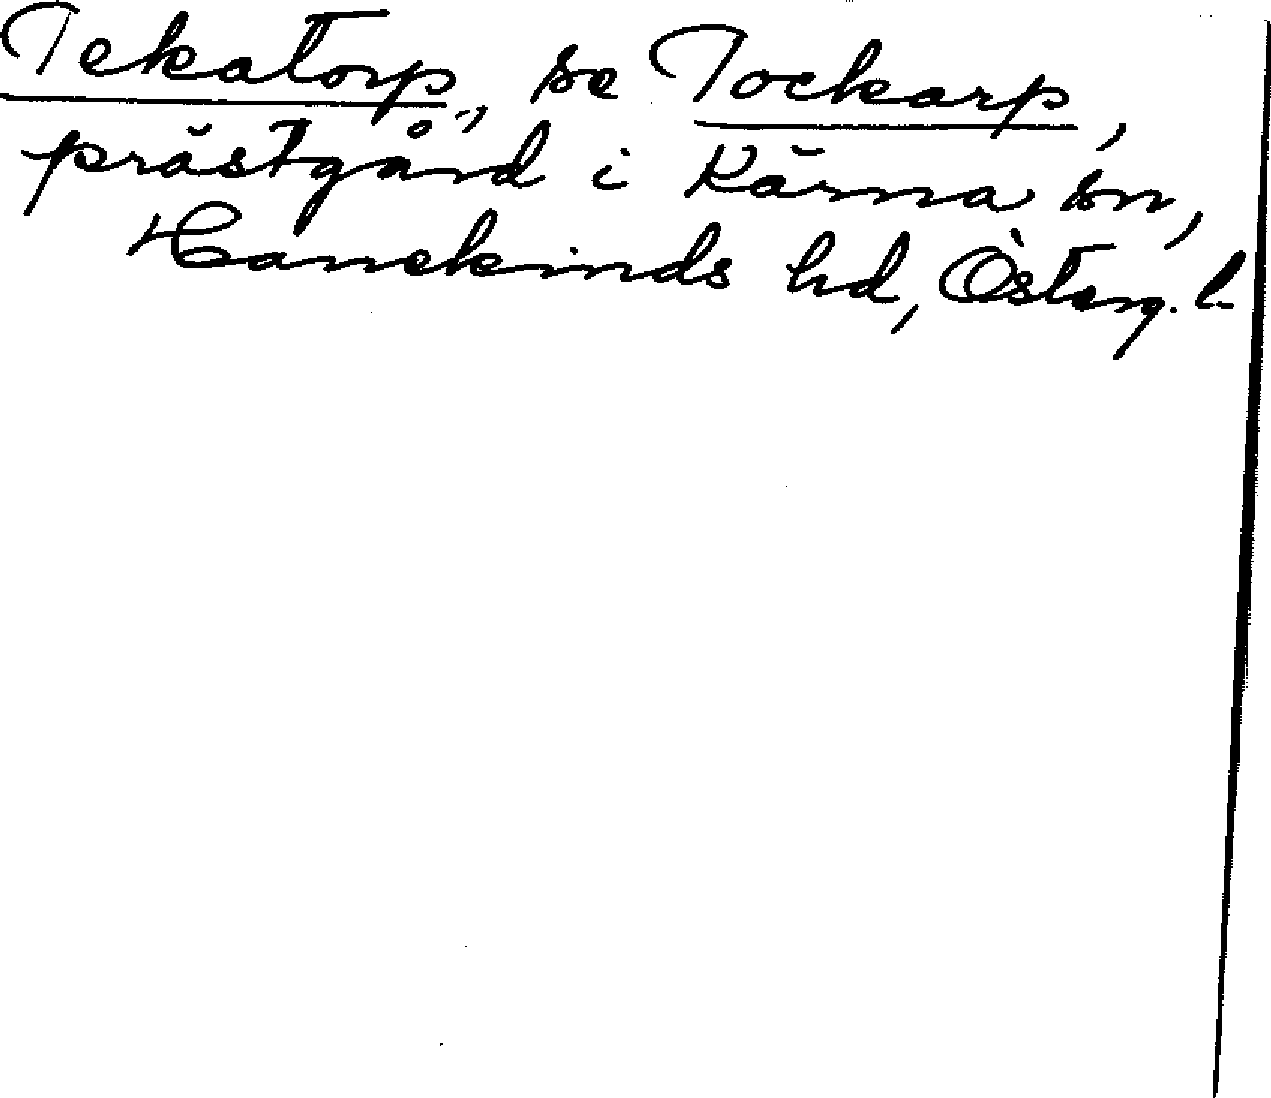 Tekatorp, se Tockarp,
prästgård i Kärna sn,
Hanekinds hd, Österg. l.